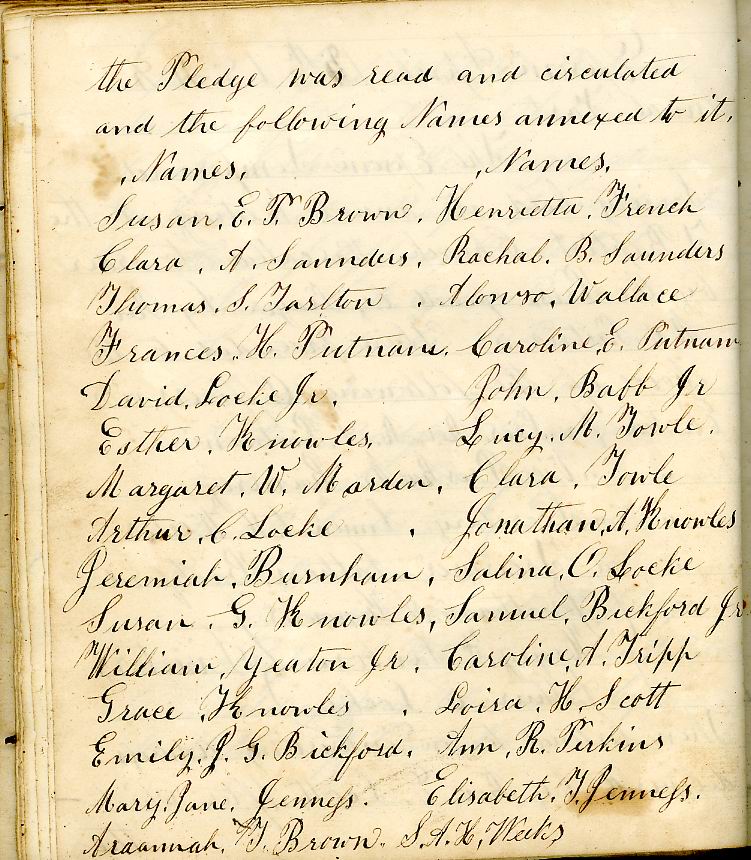 the Pledge was read and circulated
and the following Names annexed to it.
Names, Names,
Susan. E. T. Brown. Henrietta. French
Clara. A. Saunders. Rachal. B. Saunders
Thomas. S. Tarlton. Alonso, Wallace
Frances. H. Putnam. Caroline, E. Putnam
David, Locke Jr. John, Babb Jr
Esther. Knowles, Lucy. M. Towle.
Margaret. W. Marden, Clara, Towle
Arthur. C. Locke. Jonathan, A. Knowles
Jeremiah. Burnham, Salina, O. Locke
Susan. G. Knowles, Samuel. Bickford Jr
William, Yeaton Jr. Caroline, A. Tripp
Grace. Knowles. Loisa. H. Scott
Emily. J. G. Bickford. Ann. R. Perkins
Mary. Jane. Jenness. Elisabeth. T. Jenness.
T. Brown. S. A. H. Weeks